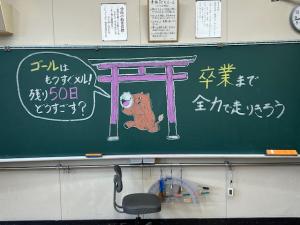 ゴールは
もうすぐメル!
残り50日
どうすごす?
卒業まで
全力で走りきろう